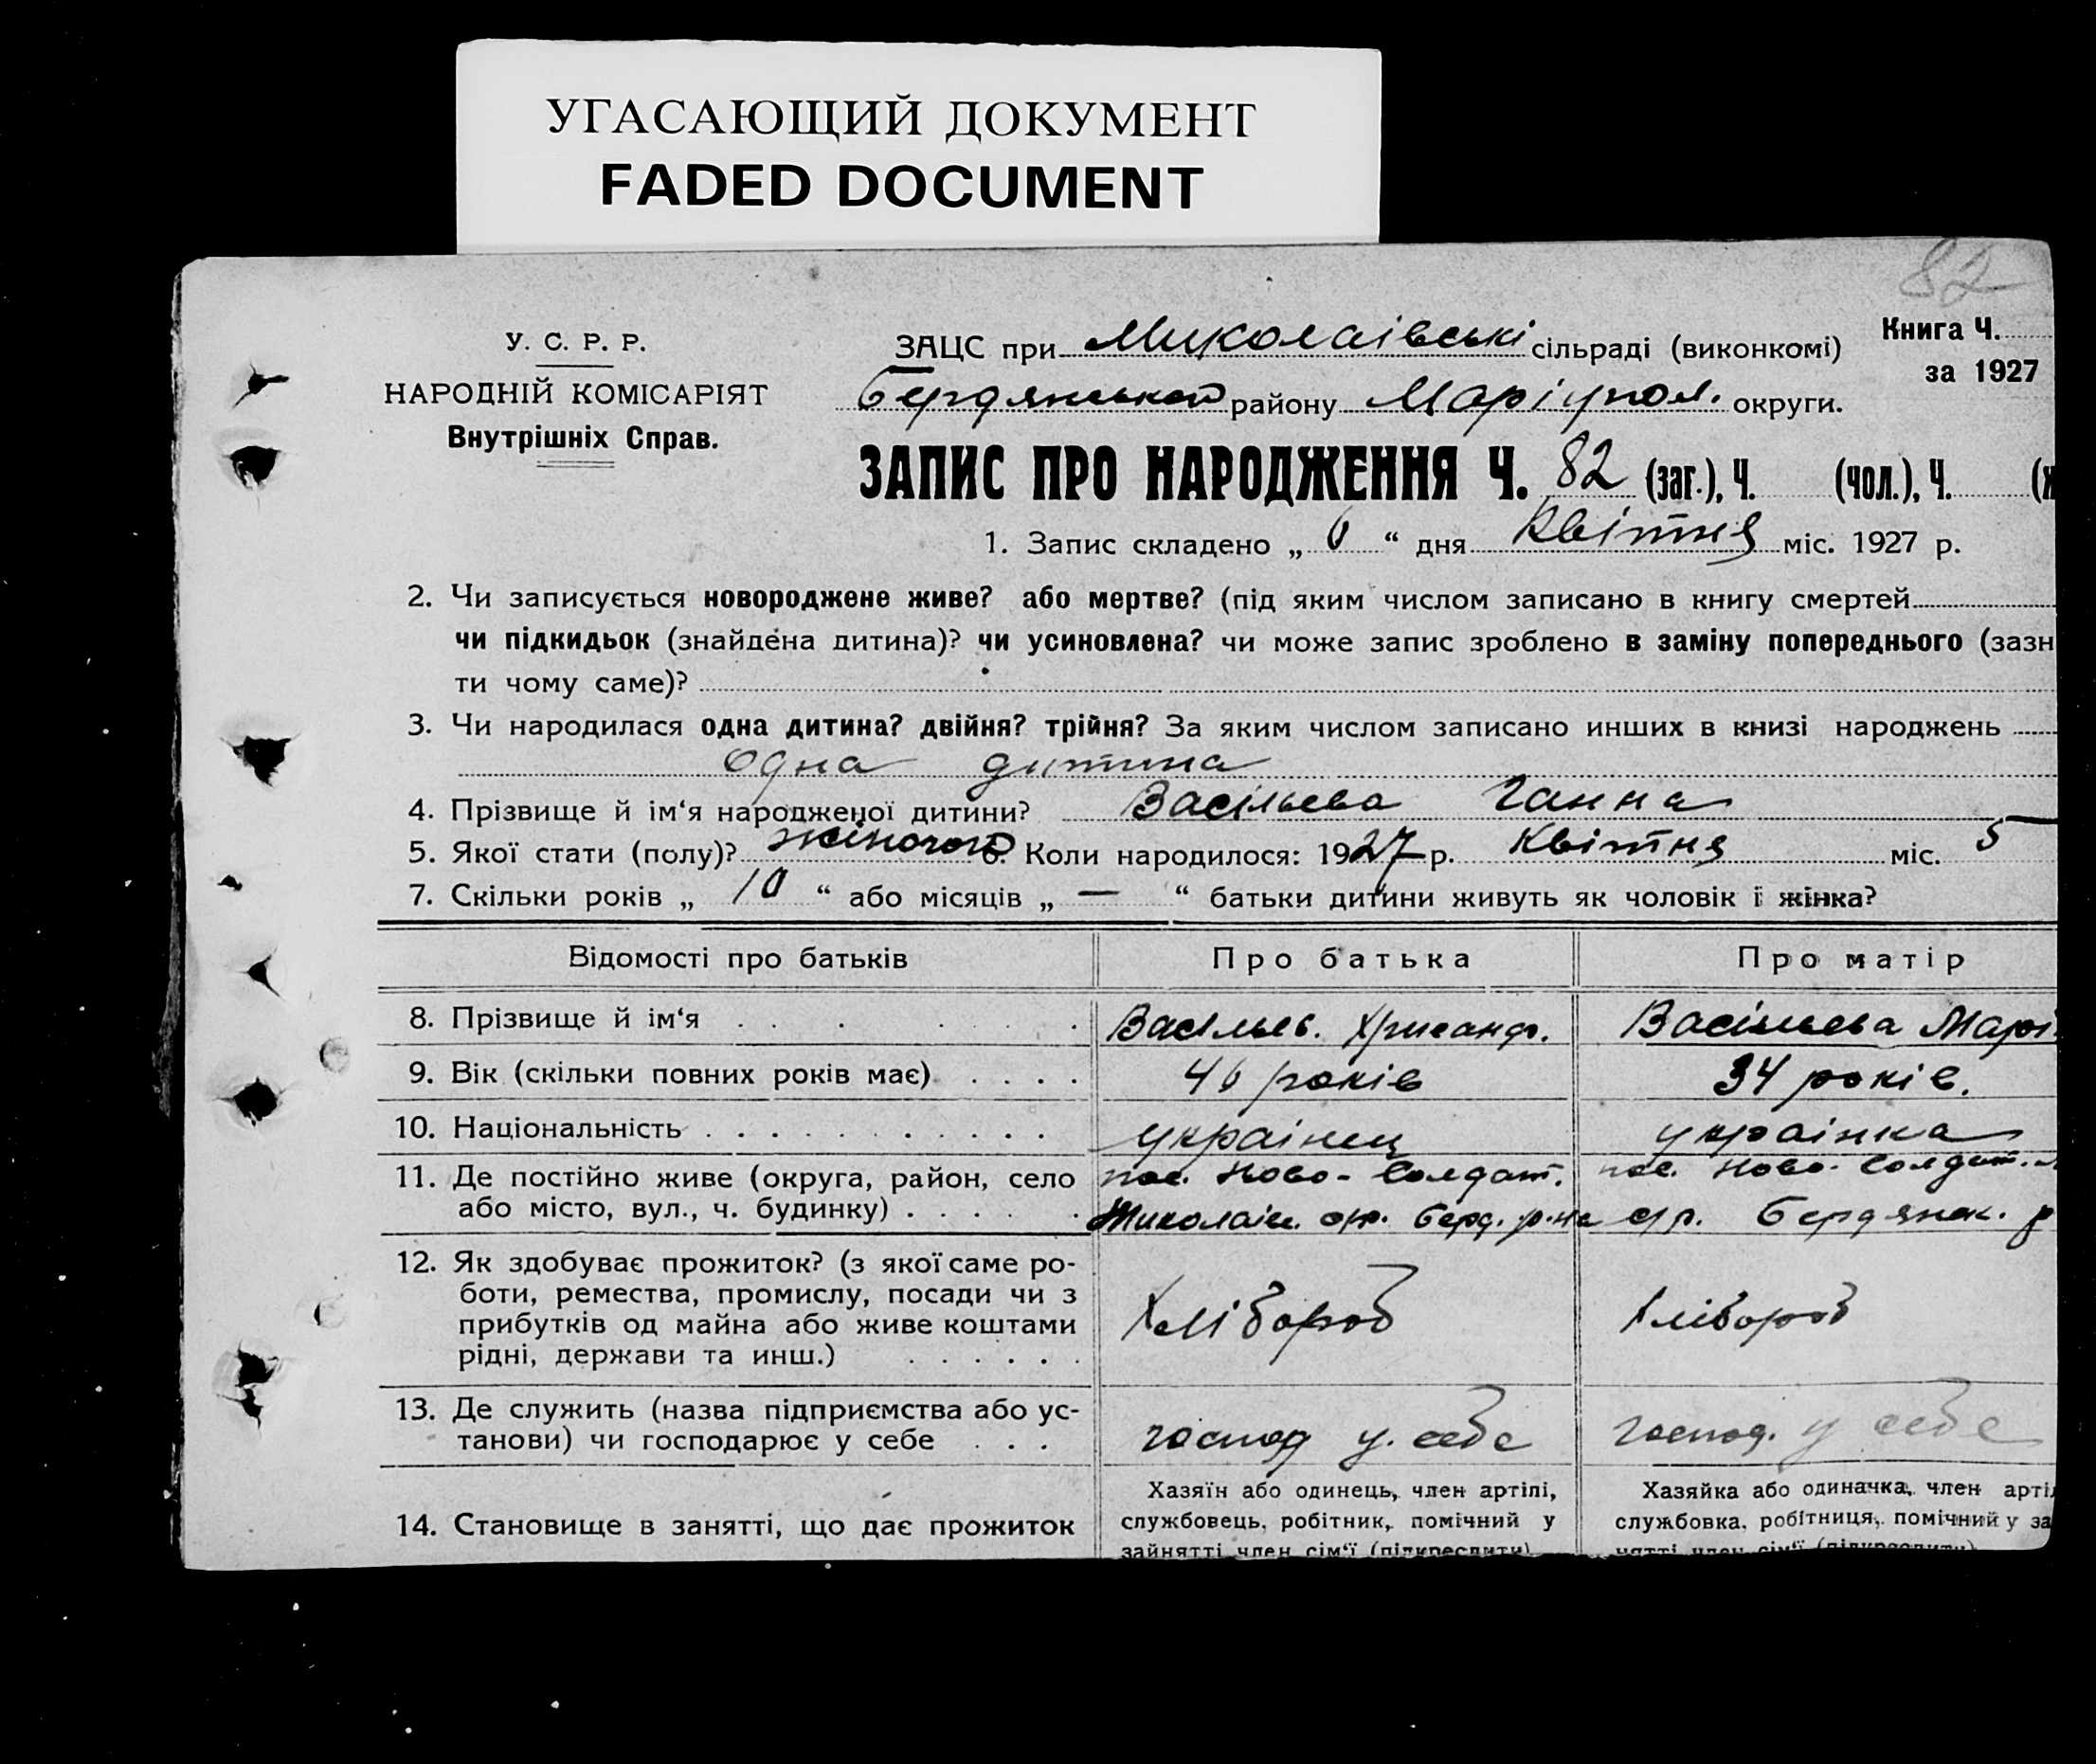 УГАСАЮЩИЙ ДОКУМЕНТ
FADED DOCUMENT
82
У. С. Р. Р.
НАРОДНІЙ КОМІСАРІЯТ
Внутрішніх Справ.
ЗАЦС при Миколаівські сільраді (виконкомі)
Книга Ч.
за 1927
Бердянського району Маріупол. округи.
ЗАПИС ПРО НАРОДЖЕННЯ Ч. 82 (заг.), Ч. (чол.), Ч. (ж
1. Запис складено „ 6 “ дня Квітня міс. 1927 р.
2. Чи записується новороджене живе? або мертве? (під яким числом записано в книгу смертей
чи підкидьок (знайдена дитина)? чи усиновлена? чи може запис зроблено в заміну попереднього (зазн
ти чому саме)?
3. Чи народилася одна дитина? двійня? трійня? За яким числом записано инших в книзі народжень
Одна дитина
4. Прізвище й ім‘я народженої дитини? Васільева Ганна
5. Якої стати (полу)? жіночого 6. Коли народилося: 1927 р. Квітня міс. 5
7. Скільки років „ 10 “ або місяців „ — “ батьки дитини живуть як чоловік і жінка?
Відомості про батьків
Про батька
Про матір
8. Прізвище й ім‘я . . . . . . .
Васільев. Хрисанф.
Васільева Марі
9. Вік (скільки повних років має) . . . .
40 років
34 років.
10. Національність . . . . . . . . . . .
украінец
украінка
11. Де постійно живе (округа, район, село
або місто, вул., ч. будинку) . . . . . .
пос. Ново-Солдат.
Миколаів. с/р. Берд. р-на
пос. Ново-Солдат.
с/р. Бердянск. р
12. Як здобуває прожиток? (з якої саме ро-
боти, ремества, промислу, посади чи з
прибутків од майна або живе коштами
рідні, держави та инш.) . . . . . .
Хлібороб
Хлібороб
13. Де служить (назва підприємства або ус-
танови) чи господарює у себе . . .
господ у. себе
господ. у себе
14. Становище в занятті, що дає прожиток
Хазяїн або одинець, член артілі,
службовець, робітник, помічний у
зайнятті член сім‘ї (підкреслити)
Хазяйка або одиначка, член арті
службовка, робітниця, помічний у за
нятті член сім‘ї (підкреслити)